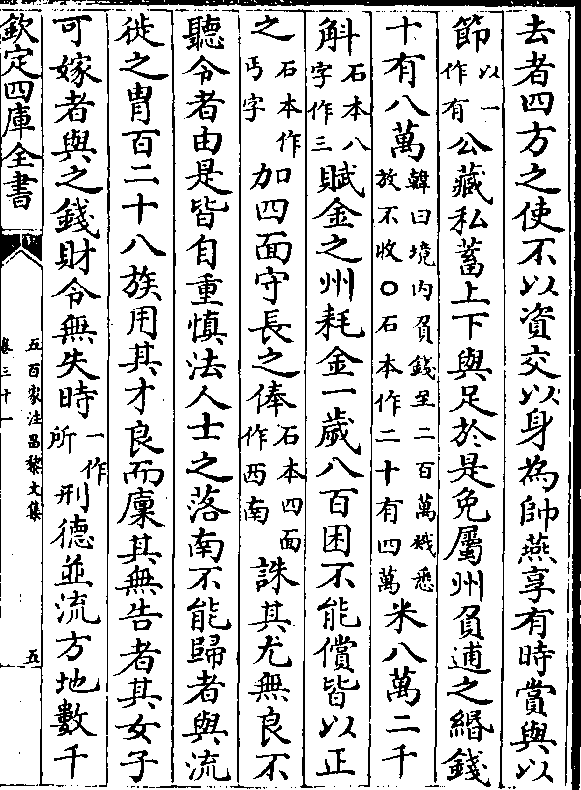 去者四方之使不以資交以身為帥燕享有時賞與以
節以一作有公藏私蓄上下與足於是免屬州負逋之緡錢
十有八萬韓曰境内負錢至二百萬纎悉放不收○石本作二十有四萬米八萬二千
斛石本八字作三賦金之州耗金一歲八百困不能償皆以正
之石本作丐字加四面守長之俸石本四面作西南誅其尤無良不
聽令者由是皆自重慎法人士之落南不能歸者與流
徙之胄百二十八族用其才良而廩其無告者其女子
可嫁者與之錢財令無失時一作所刑德並流方地數千
欽定四庫全書
五百家注昌黎文集
卷三十一
五